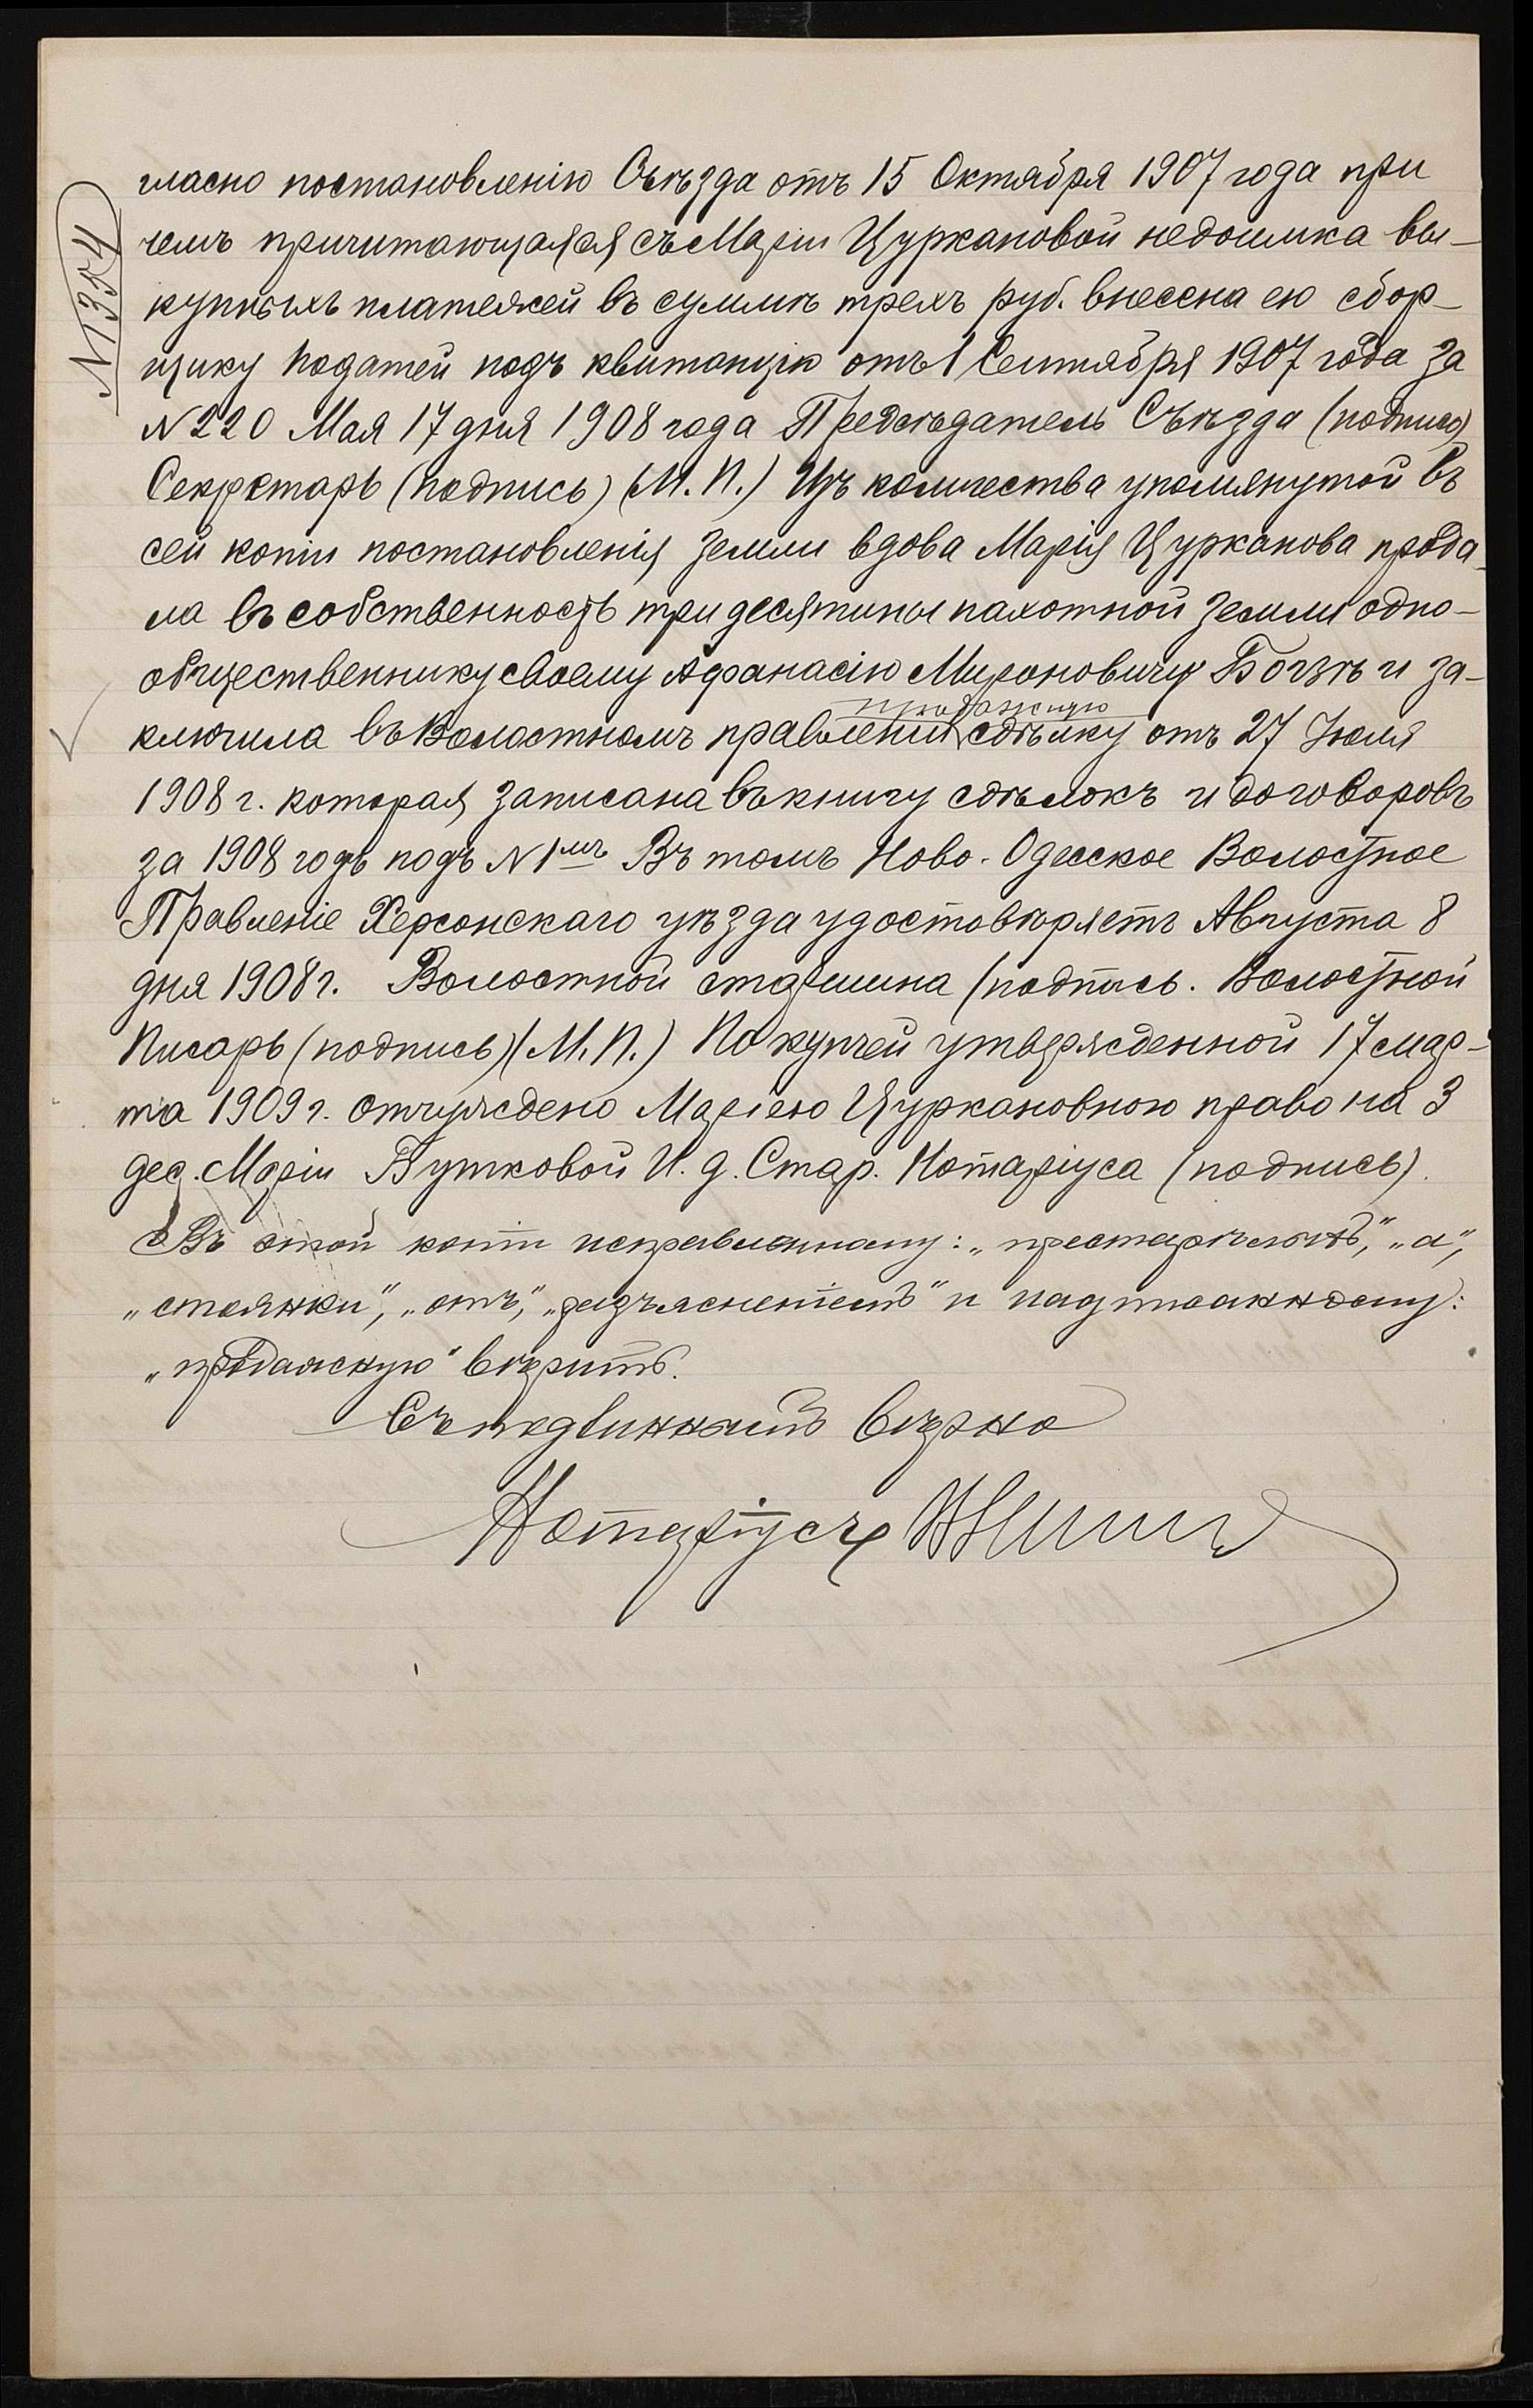 N 1354
гласно постановленію Съѣзда отъ 15 Октября 1907 года при
чемъ причитающаяся съ Маріи Цуркановой недоимка вы-
купныхъ платежей въ суммѣ трехъ руб. внесена ею сбор-
щику податей подъ квитанцію отъ 1 Сентября 1907 года за
N 220 Мая 17 дня 1908 года Предсѣдатель Съѣзда (подпись)
Секретарь (подпись) (М. П.) Изъ количества упомянутой въ
сей копіи постановленія земли вдова Марія Цурканова прода-
ла въ собственность три десятины пахотной земли одно-
общественнику своему Афанасію Мироновичу Богзѣ и за-
продажную
ключила въ Волостномъ правленіи сдѣлку отъ 27 Іюля
1908 г. которая записана въ книгу сдѣлокъ и договоровъ
за 1908 годъ подъ N 1мъ Въ томъ Ново-Одесское Волостное
Правленіе Херсонскаго уѣзда удостовѣряетъ Августа 8
дня 1908 г. Волостной старшина (подпись. Волостной
Писарь (подпись) (М. П.) По купчей утвержденной 17 мар-
та 1909 г. отчуждено Маріею Цуркановною право на 3
дес. Маріи Бутковой И. д. Стар. Нотаріуса (подпись).
Въ этой копіи исправленному: „престарѣлый", „а",
„стоянки", „отъ", „разъясненіемъ" и надписанному:
„продажную" вѣрить.
Съ подлиннымъ вѣрно
Нотаріусъ